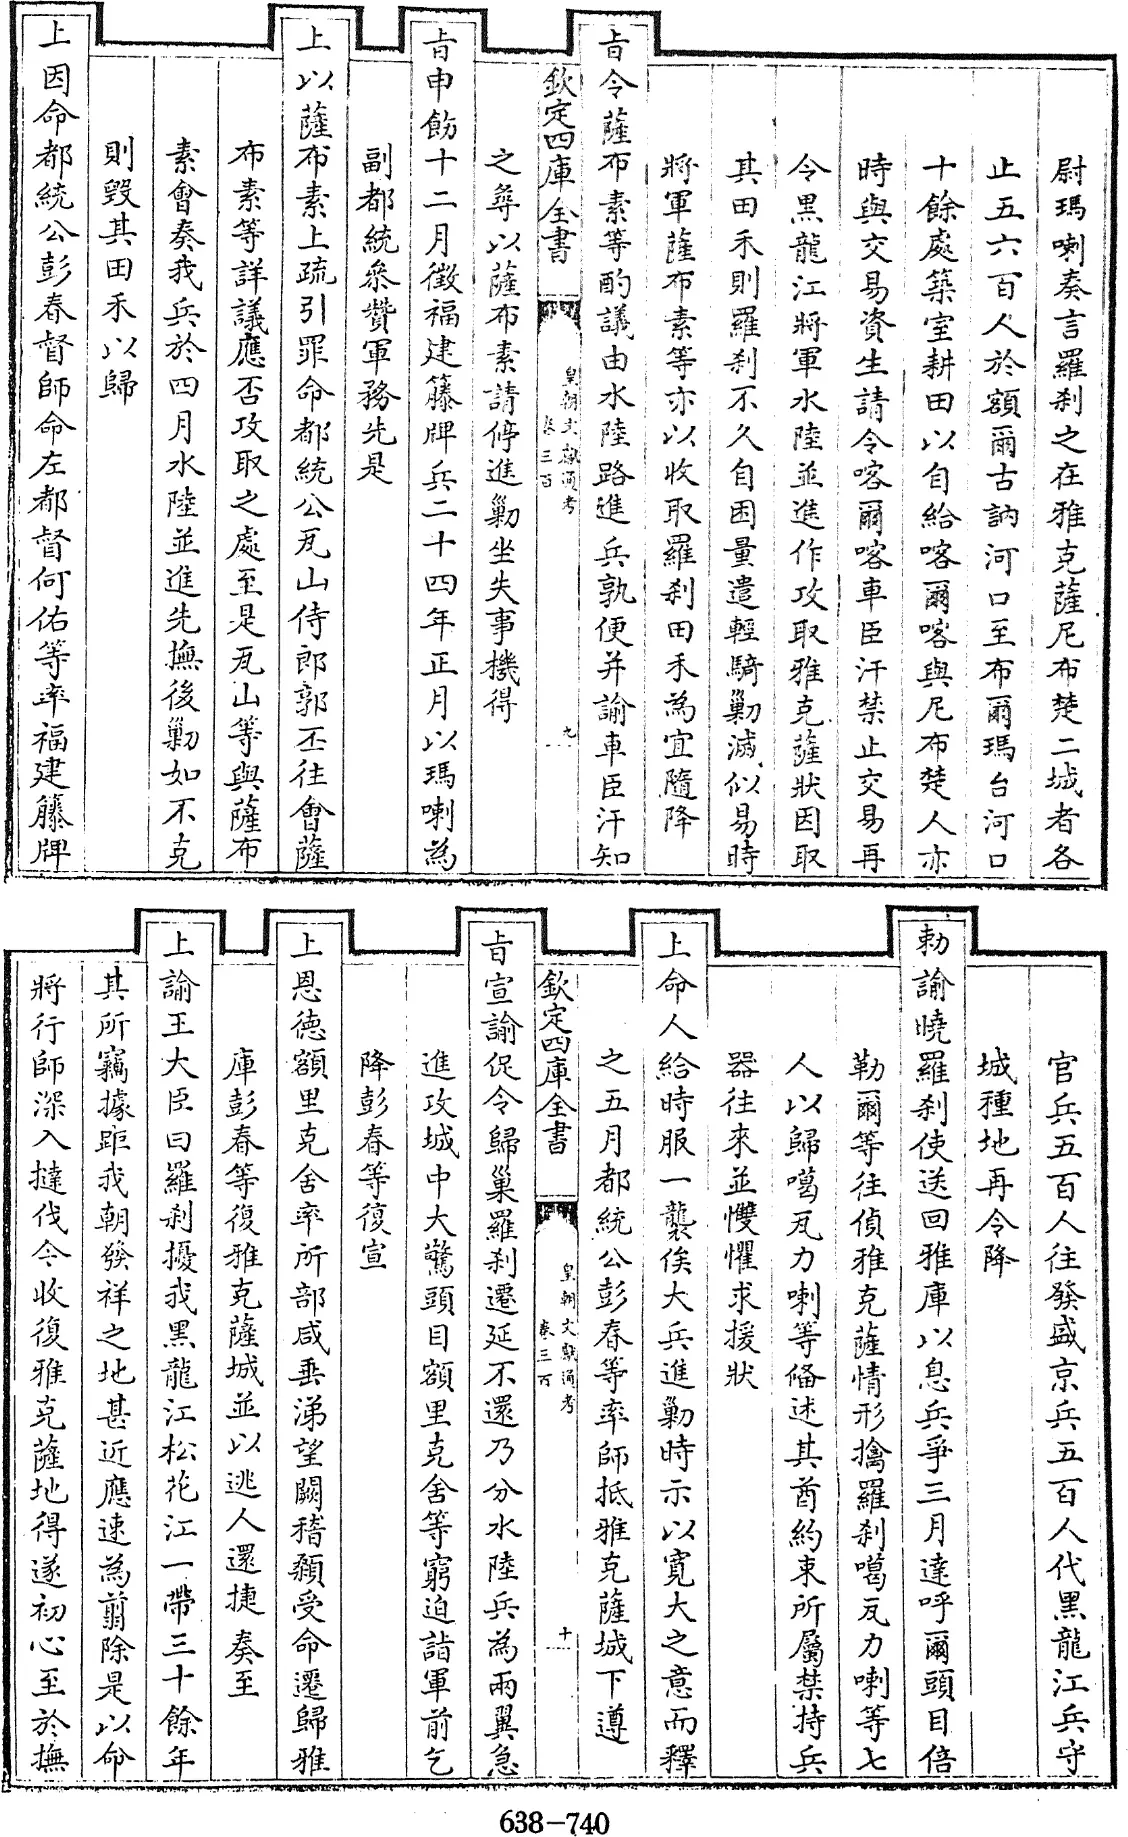 尉瑪喇奏言羅刹之在雅克薩尼布楚二城者各
止五六百人於額爾古訥河口至布爾瑪台河口
十餘處築室耕田以自給喀爾喀與尼布楚人亦
時與交易資生請令喀爾喀車臣汗禁止交易再
令黒龍江將軍水陸並進作攻取雅克薩狀因取
其田禾則羅刹不久自困量遣輕騎剿滅似易時
將軍薩布素等亦以收取羅刹田禾為宜隨降
㫖令薩布素等酌議由水陸路進兵孰便并諭車臣汗知
欽定四庫全書
皇朝文獻通考
卷三百
九
之尋以薩布素請停進剿坐失事機得
㫖申飭十二月徵福建籐牌兵二十四年正月以瑪喇為
副都統叅贊軍務先是
上以薩布素上疏引罪命都統公瓦山侍郎郭丕往會薩
布素等詳議應否攻取之處至是瓦山等與薩布
素會奏我兵於四月水陸並進先撫後剿如不克
則毀其田禾以歸
上因命都統公彭春督師命左都督何佑等率福建籐牌
官兵五百人往發盛京兵五百人代黒龍江兵守
城種地再令降
勅諭曉羅刹使送回雅庫以息兵爭三月達呼爾頭目倍
勒爾等往偵雅克薩情形擒羅刹噶瓦力喇等七
人以歸噶瓦力喇等備述其酋約束所屬禁持兵
器往來並㩳懼求援狀
上命人給時服一襲俟大兵進剿時示以寛大之意而釋
之五月都統公彭春等率師抵雅克薩城下遵
欽定四庫全書
皇朝文獻通考
卷三百
十
㫖宣諭促令歸巢羅刹遷延不還乃分水陸兵為兩翼急
進攻城中大驚頭目額里克舍等窮迫詣軍前乞
降彭春等復宣
上恩德額里克舍率所部咸垂涕望闕稽顙受命遷歸雅
庫彭春等復雅克薩城並以逃人還捷奏至
上諭王大臣曰羅刹擾我黒龍江松花江一帶三十餘年
其所竊據距我朝發祥之地甚近應速為翦除是以命
將行師深入撻伐今收復雅克薩地得遂初心至於撫
638-740